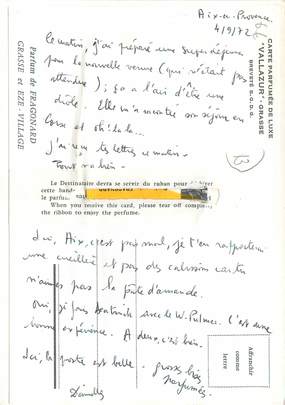 Aix-en-Provence.
4/9/72
Ce matin, j'ai préparé une super déjeune
pour la nouvelle venue (qui n'était pas
attendue); ça a l'air d'être une
drôle. Elle m'a raconté son séjour en
Corse et oh! la la...
J'ai reçu tes lettres ce matin.
Tout va bien.
CARTE PARFUMÉE DE LUXE
"VALLAZUR" - GRASSE
BREVETÉ S.G.D.G.
Parfum de FRAGONARD
GRASSE et EZE-VILLAGE
Le Destinataire devra se servir du ruban pour
cette bande
le parfum
When you receive this card, please tear off
the ribbon to enjoy the perfume.
Ici, Aix, c'est pas mal, je t'en rapporterai
une cueillette et pas des calissons car tu
n'aimes pas la pâte d'amande.
Oui, je fais avec le W. Palmer. C'est une
bonne expérience. A deux, c'est bien.
Ici, la poste est belle. grosses bises
parfumées.
Affranchir
comme
lettre